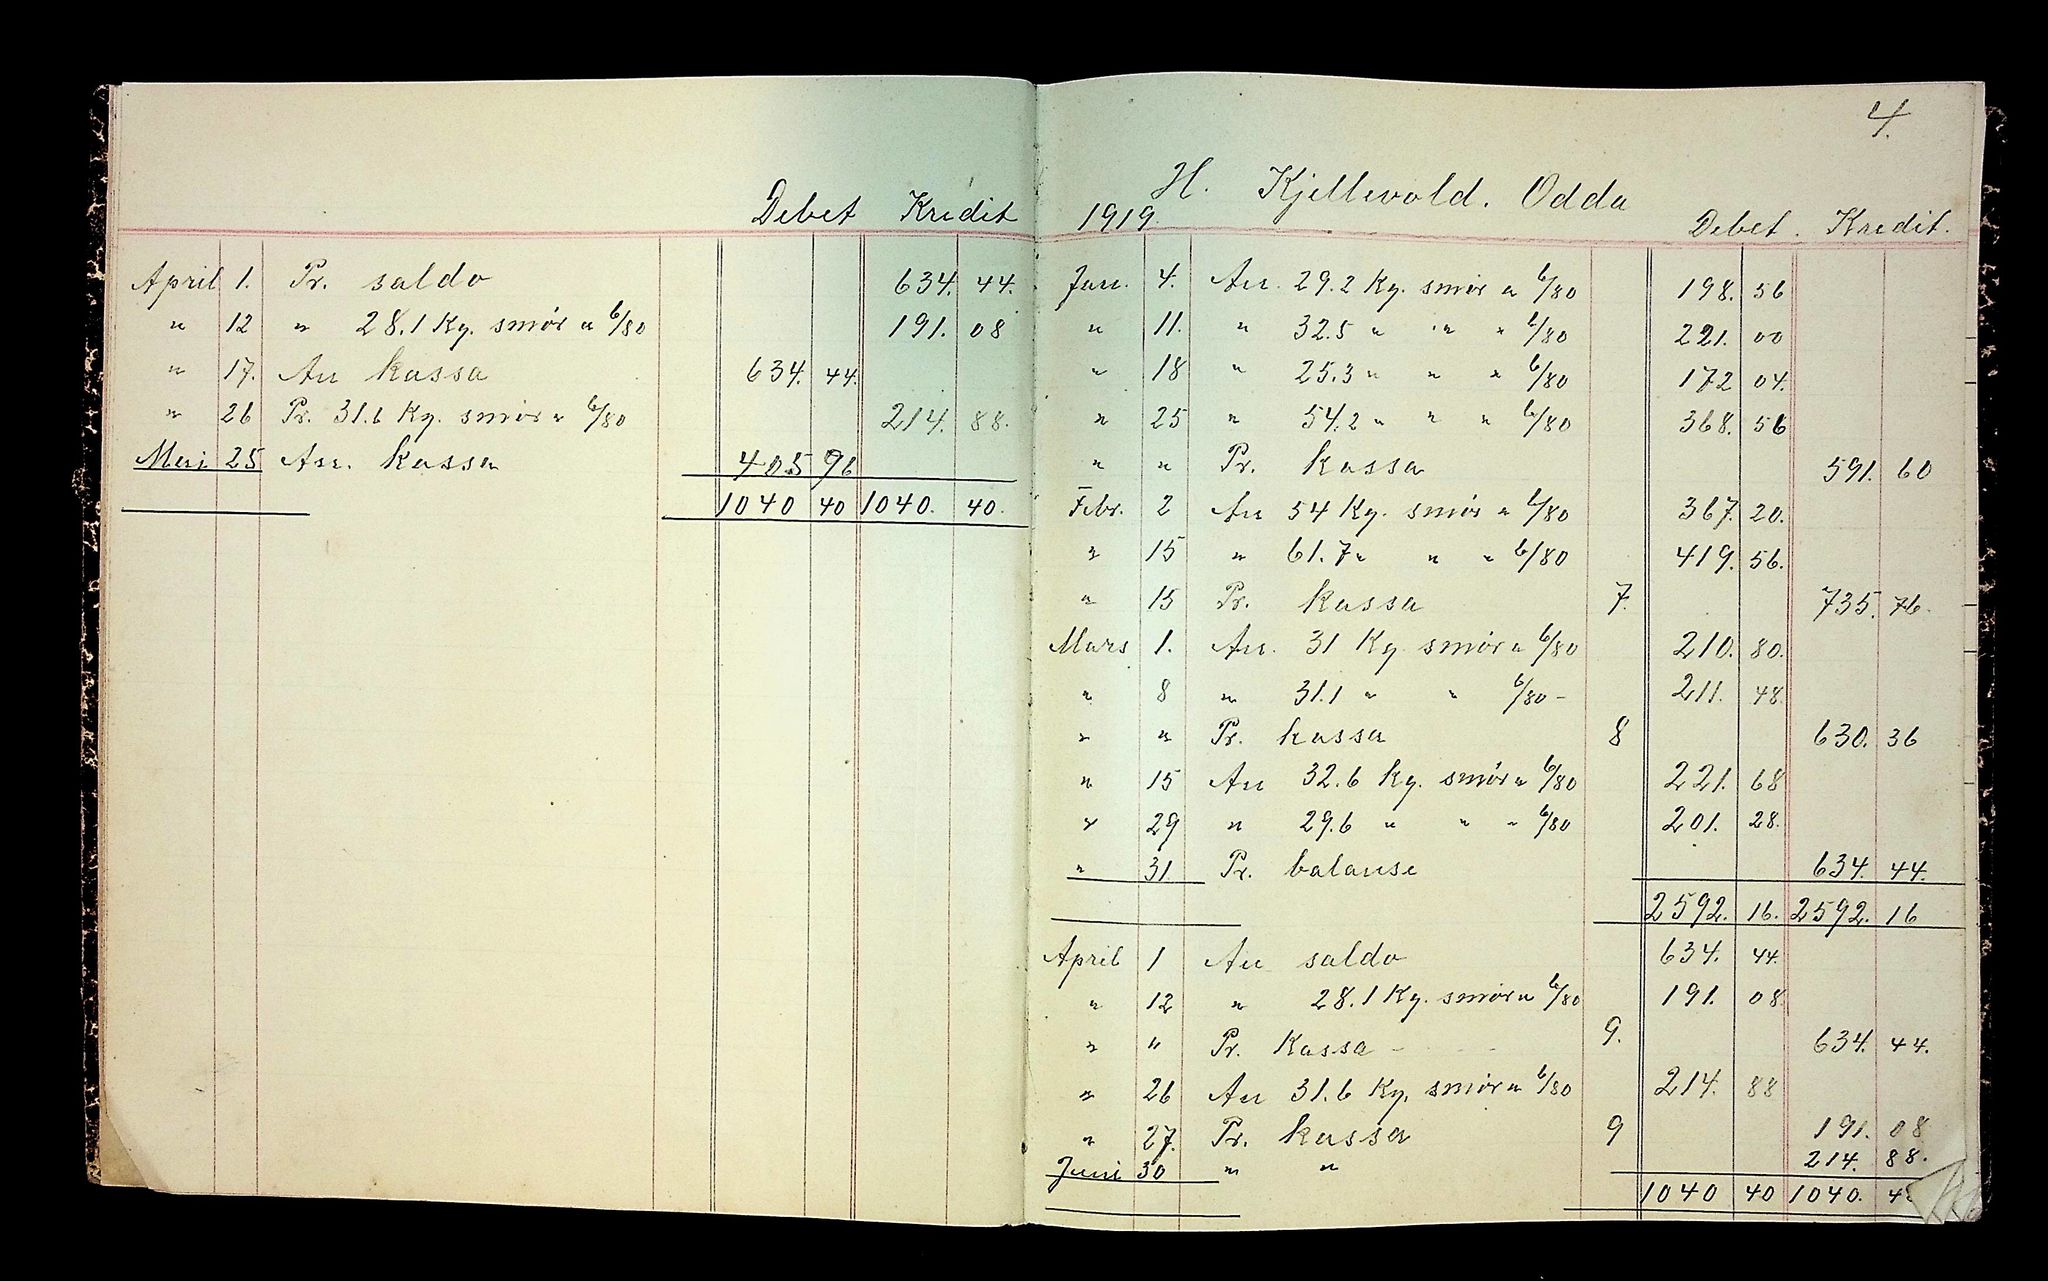 Debet Kredit
April 1. Pr. saldo 634. 44.
" 12 " 28.1 Kg. smør a 6/80 191. 08
" 17. An kassa 634. 44.
" 26 Pr. 31.6 Kg. smør a 6/80 214. 88.
Mai 25 An. kassa 405 96
1040 40 1040. 40.
4.
H. Kjellevold. Odda
1919. Debet. Kredit.
Jan. 4. An. 29.2 Kg. smør a 6/80 198. 56
" 11. " 32.5 " " " 6/80 221. 00
" 18 " 25.3 " " " 6/80 172 04.
" 25 " 54.2 " " " 6/80 368. 56
" " Pr. kassa 591. 60
Febr. 2 An 54 Kg. smør a 6/80 367. 20.
" 15 " 61.7 " " " 6/80 419. 56.
" 15 Pr. kassa 7. 735. 76.
Mars 1. An. 31 Kg. smør a 6/80 210. 80.
" 8 " 31.1 " " 6/80 - 211. 48.
" " Pr. kassa 8 630. 36
" 15 An 32.6 kg. smør a 6/80 221. 68
" 29 " 29.6 " " " 6/80 201. 28.
" 31. Pr. balanse 634. 44.
2592. 16. 2592. 16
April 1 An saldo 634. 44.
" 12 " 28.1 Kg. smør a 6/80 191. 08
" " Pr. Kassa 9. 634. 44.
" 26 An 31.6 Kg. smør a 6/80 214. 88
" 27. Pr. kassa 9 191. 08
Juni 30 " " 214. 88.
1040 40 1040.